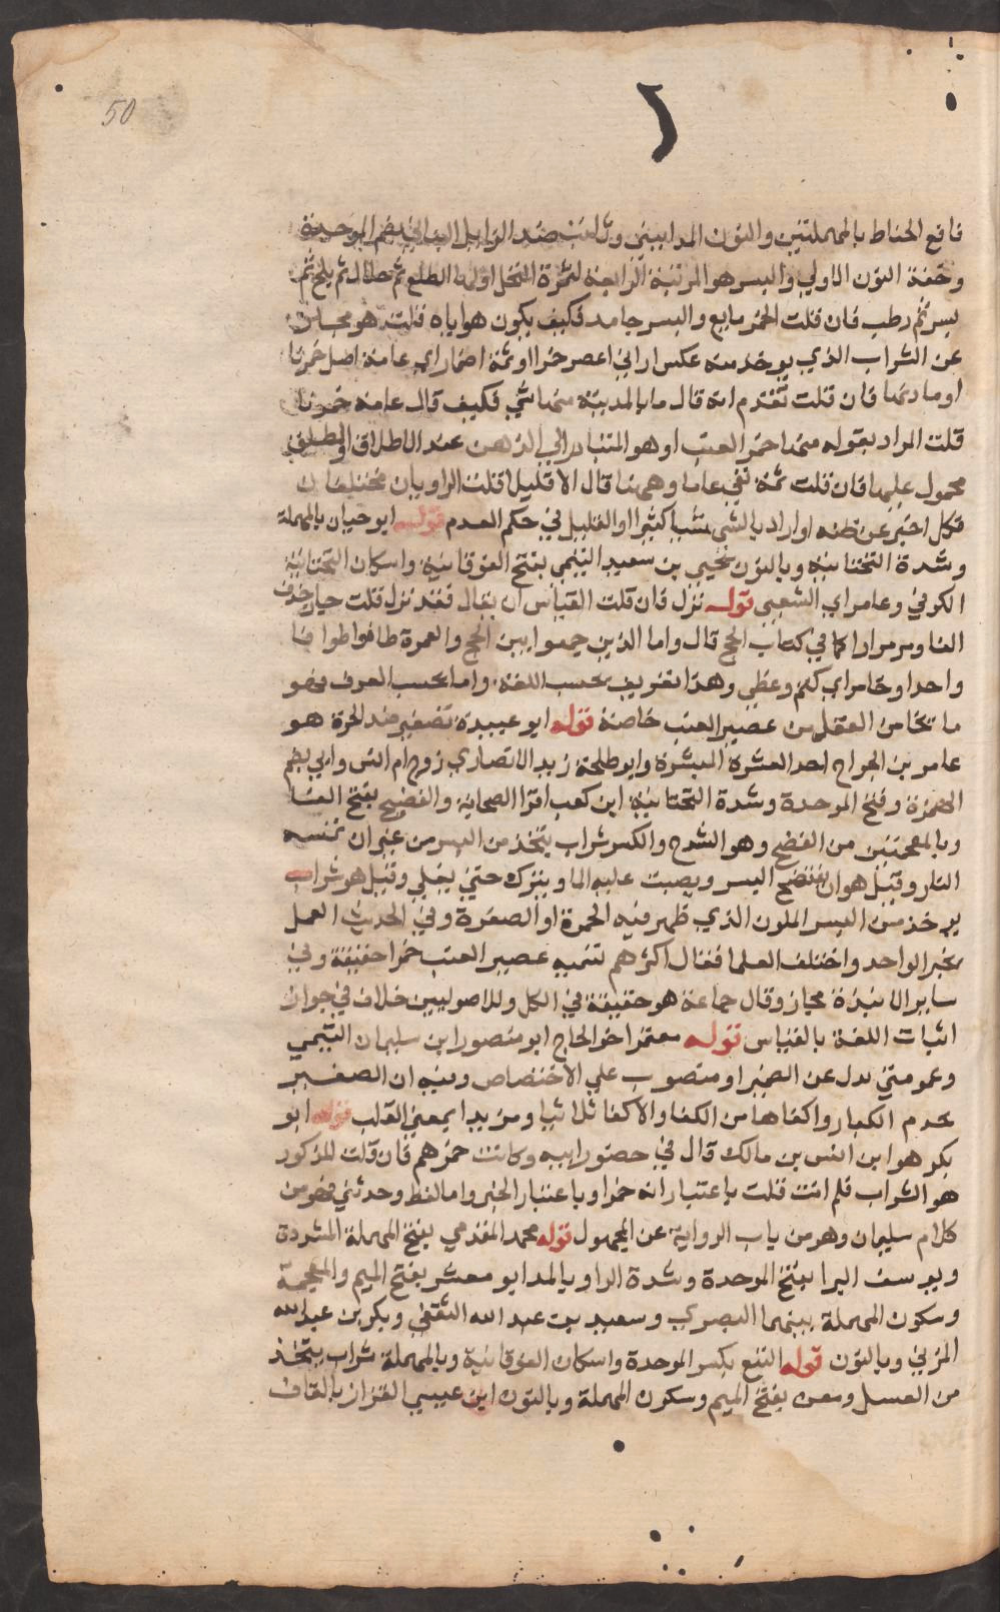 50
نافع الحناط بالمهملتين والنون المدايني وثابت ضد الزايل البناني بضم الموحدة
وخفة النون الاولي والبسر هو المرتبة الرابعة لثمرة النخل اولها الطلع ثم خلال ثم بلح ثم
بسر ثم رطب فان قلت الخمر مايع والبسر جامد فكيف يكون هو اياه قلت هو مجاز
عن الشراب الذي يوخذ منه عكس اراني اعصر خمرا او ثمة اضمار اي عامة اصل خمرنا
او مادتها فان قلت تقدم انه قال ما بالمدينة منها شي فكيف قال عامة خمرنا
قلت المراد بقوله منها خمر العنب اذ هو المتبادر الي الذهن عند الاطلاق او المطلق
محمول عليها فان قلت ثمة نفي عاما وههنا قال الا قليلا قلت الراويان مختلفان
فكل اخبر عن ظنه او اراد بالشي شيا كثيرا او القليل في حكم العدم قوله ابو حيان بالمهملة
وشدة التحتانية وبالنون يحيي بن سعيد التيمي بفتح الفوقانية واسكان التحتانية
الكوفي وعامر اي الشعبي قوله نزل فان قلت القياس ان يقال فقد نزل قلت جاز حذف
الفا ومر مرارا كما في كتاب الحج قال واما الذين جمعوا بين الحج والعمرة طافوا طوافا
واحدا وخامر اي كتم وغطي وهذا تعريف بحسب اللغة واما بحسب العرف فهو
ما يخامر العقل من عصير العنب خاصة قوله ابو عبيدة تصغير ضد الحرة هو
عامر بن الجراح احد العشرة المبشرة وابو طلحة زيد الانصاري زوج ام انس وابي بضم
الهمزة وفتح الموحدة وشدة التحتانية ابن كعب اقرا الصحابة والفضيخ بفتح الفا
وبالمعجمتين من الفضخ وهو الشدخ والكسر شراب يتخذ من البسر من غير ان تمسه
النار وقيل هو ان يفضخ البسر ويصب عليه الما ويترك حتي يغلي وقيل هو شراب
يوخذ من البسر الملون الذي ظهر فيه الحمرة او الصفرة وفي الحديث العمل
بخبر الواحد واختلف العلما فقال اكثرهم تسمية عصير العنب خمرا حقيقة وفي
ساير الانبذة مجاز وقال جماعة هو حقيقة في الكل وللاصوليين خلاف في جواز
اثبات اللغة بالقياس قوله معتمر اخو الحاج ابو منصور ابن سليمان التيمي
وعمومتي بدل عن الضمير او منصوب علي الاختصاص وفيه ان الصغير
يخدم الكبار واكفاها من الكفا والاكفا ثلاثيا ومزيدا بمعني القلب قوله ابو
بكر هو ابن انس بن مالك قال في حضور ابيه وكانت خمرهم فان قلت المذكور
هو الشراب فلم انث قلت باعتبار انه خمر او باعتبار الخبر واما لفظ وحدثني فهو من
كلام سليمان وهو من باب الرواية عن المجهول قوله محمد المقدمي بفتح المهملة المشددة
ويوسف البرا بفتح الموحدة وشدة الرا وبالمد ابو معشر بفتح الميم والمعجمة
وسكون المهملة بينهما البصري وسعيد بن عبد الله الثقفي وبكر بن عبد الله
المزني وبالنون قوله البتع بكسر الموحدة واسكان الفوقانية وبالمهملة شراب يتخذ
من العسل ومعن بفتح الميم وسكون المهملة وبالنون ابن عيسي القزاز بالقاف